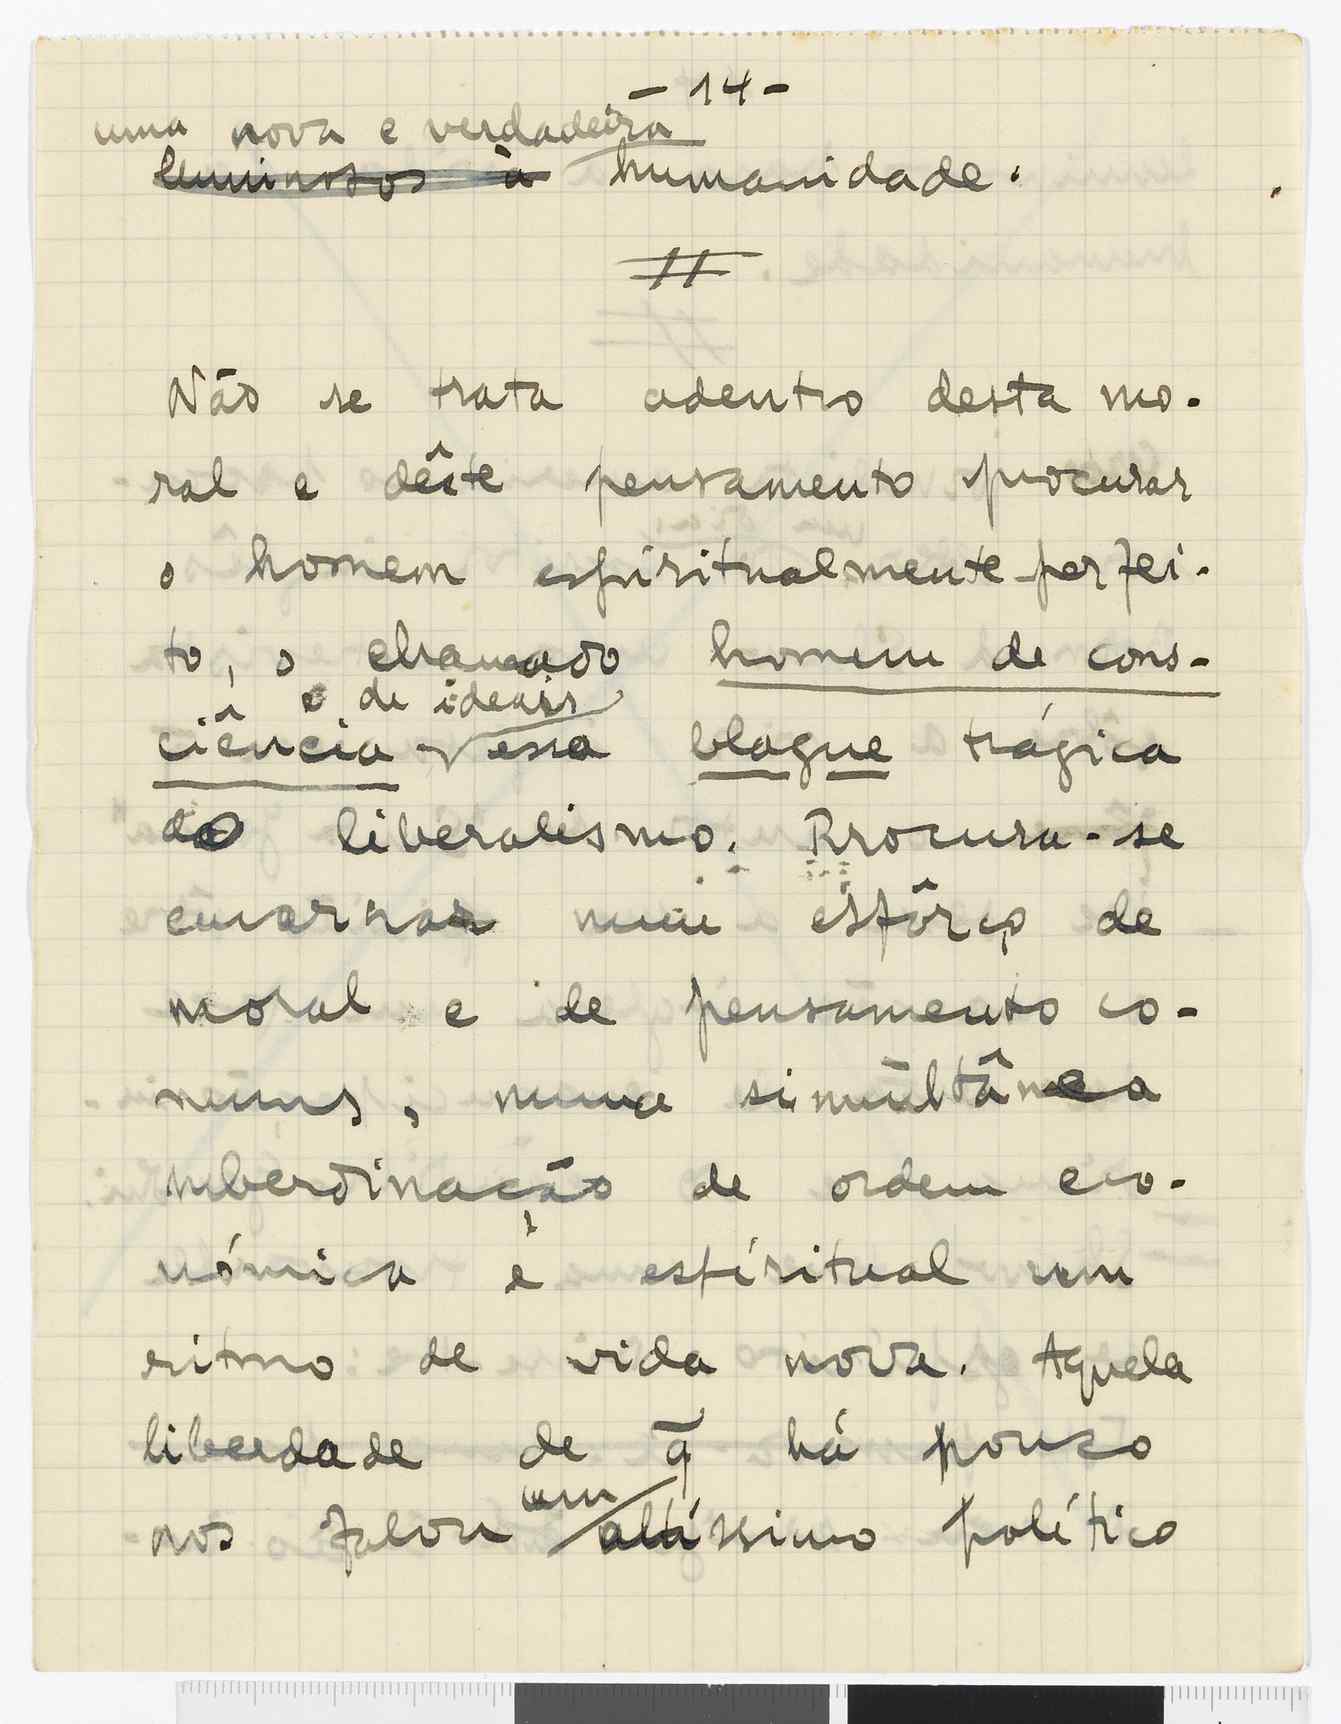 - 14 -
uma nova e verdadeira
luminosos à humanidade.
Não se trata adentro desta mo-
ral e dêste pensamento procurar
o homem espíritualmente perfei-
to, o chamado homem de cons-
e de ideais
ciência essa blague trágica
do liberalismo. Procura-se
encarnar num esfôrço de
moral e de pensamento co-
muns, numa simultânea
suberdinação de ordem eco-
nómica e espíritual um
ritmo de vida nova. Aquela
liberdade de q̃ há pouco
um
nos falou altíssimo político